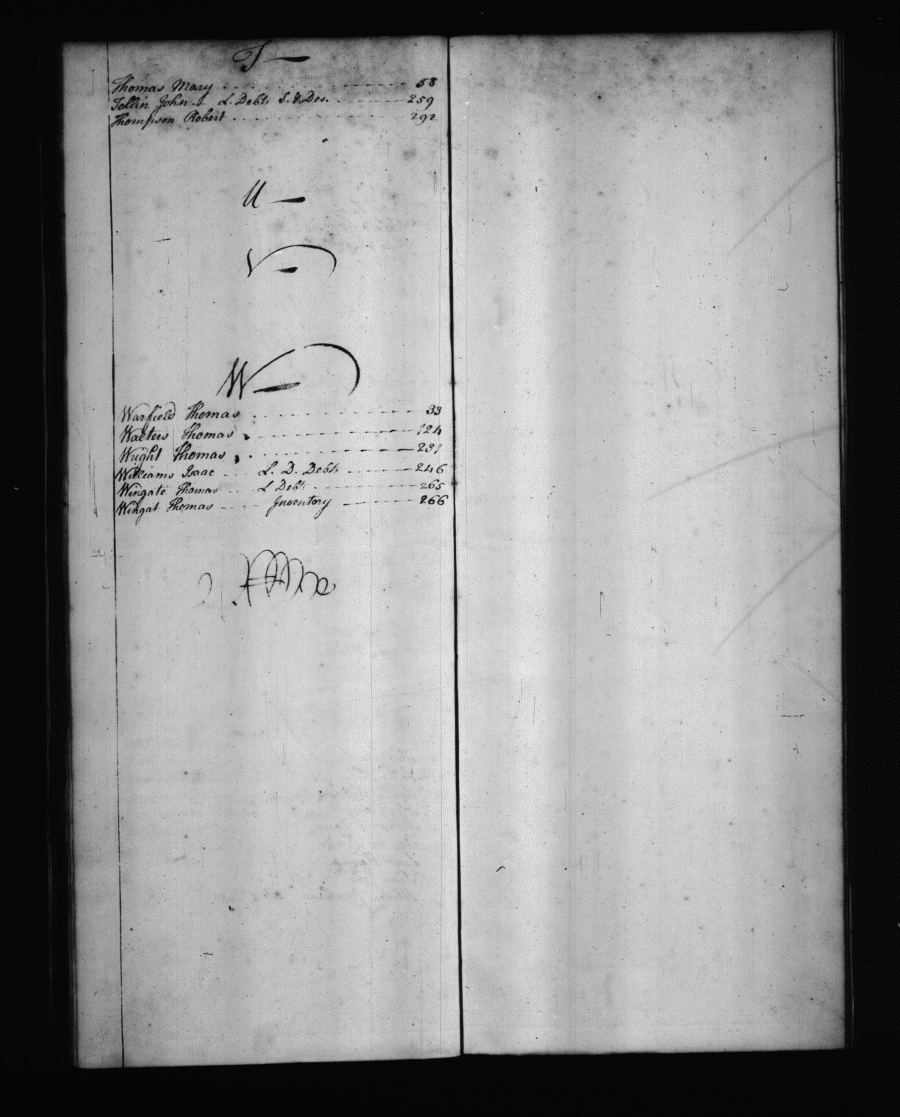 T
Thomas Mary 58
Tollin John L. Debts S. & Des. 259
Thompson Robert 292
U
V
W
Warfield Thomas 33
Walters Thomas 124
Wright Thomas 231
Williams Isaac L. D. Debts 246
Wingate Thomas L Debts 265
Wingat Thomas Inventory 266